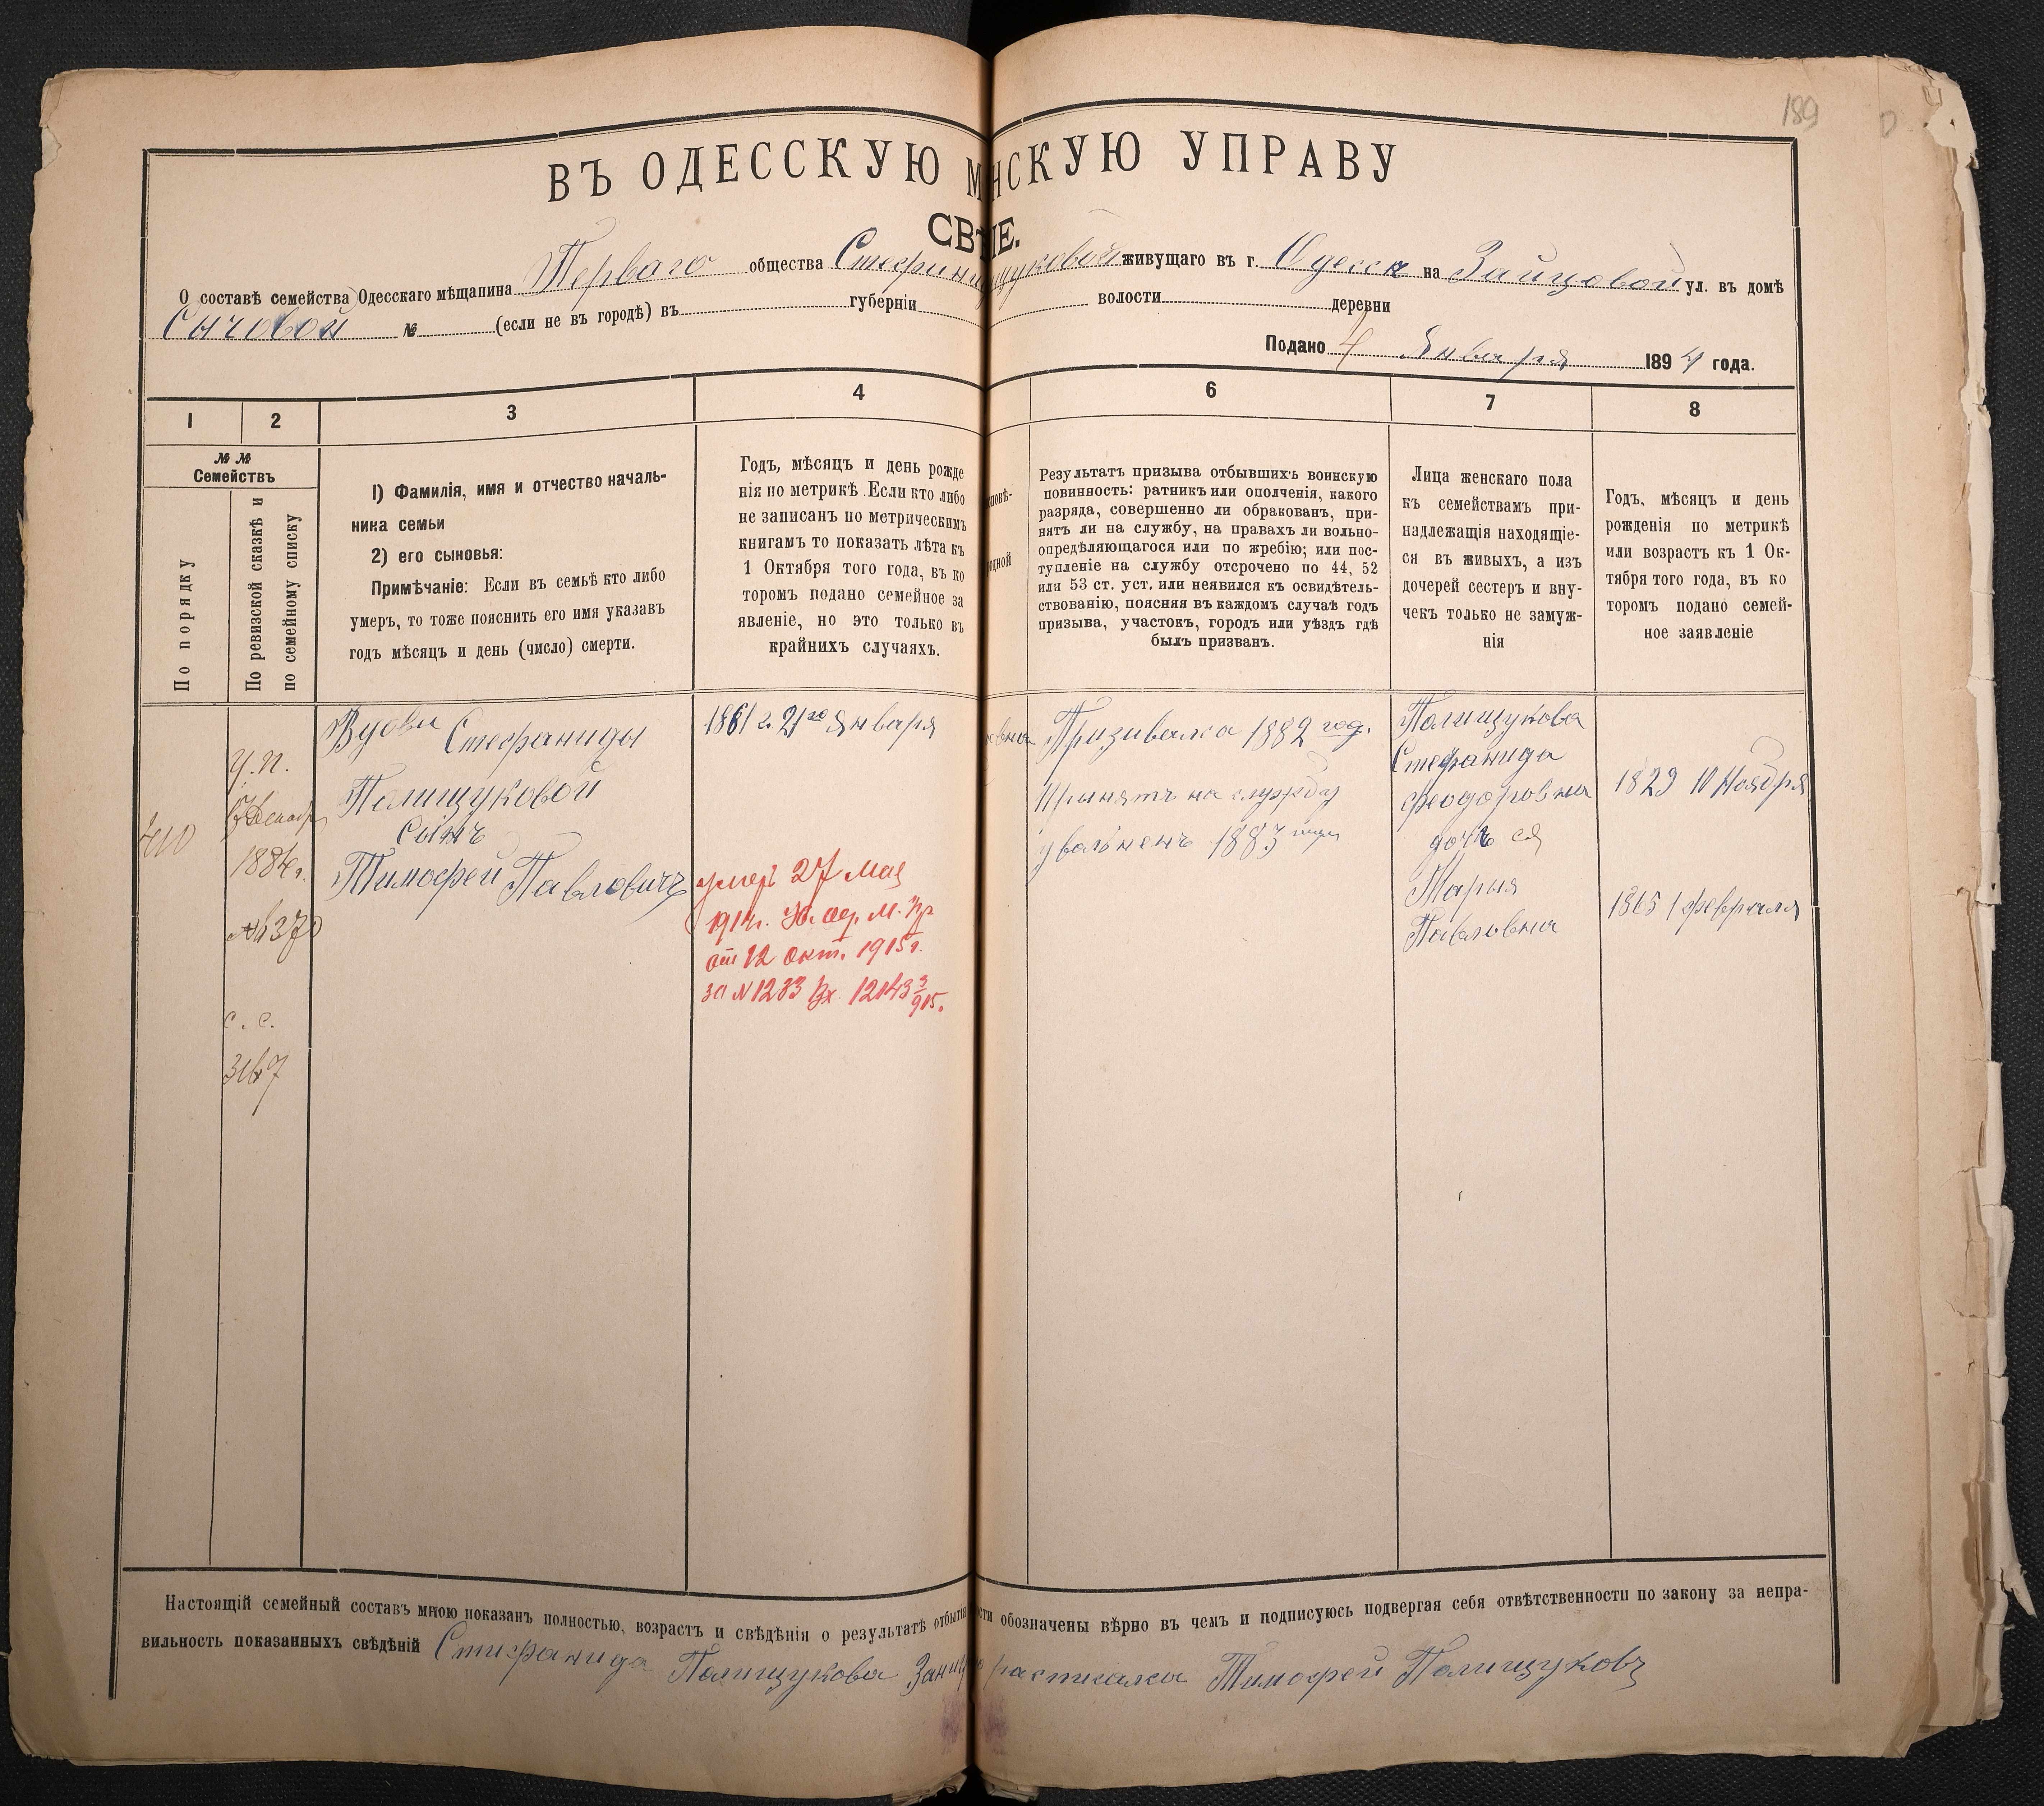 189
ВЪ ОДЕССКУЮ М НСКУЮ УПРАВУ
СВѢ ІЕ.
О составѣ семейства Одесскаго мѣщанина Перваго общества Стефани щуковой живущаго въ г. Одесса на Зайцовой ул. въ домѣ
Сычовой № (если не въ городѣ) въ губерніи волости деревни
Подано 4 Января 1894 года.
1 2 3 4 6 7 8
№ № Семействъ
По порядку
По ревизской сказкѣ и
по семейному списку
1) Фамилія, имя и отчество началь-
ника семьи
2) его сыновья:
Примѣчаніе: Если въ семьѣ кто либо
умеръ, то тоже пояснить его имя указавъ
годъ мѣсяцъ и день (число) смерти.
Годъ, мѣсяцъ и день рожде
нія по метрикѣ. Если кто либо
не записанъ по метрическимъ
книгамъ то показать лѣта къ
1 Октября того года, въ ко
торомъ подано семейное за
явленіе, но это только въ
крайнихъ случаяхъ.
исповѣ-
одной
Результатъ призыва отбывшихъ воинскую
повинность: ратникъ или ополченія, какого
разряда, совершенно ли обракованъ, при-
нятъ ли на службу, на правахъ ли вольно-
опредѣляющагося или по жребію; или пос-
тупленіе на службу отсрочено по 44, 52
или 53 ст. уст. или неявился къ освидѣтель-
ствованію, поясняя въ каждомъ случаѣ годъ
призыва, участокъ, городъ или уѣздъ гдѣ
былъ призванъ.
Лица женскаго пола
къ семействамъ при-
надлежащія находящіе-
ся въ живыхъ, а изъ
дочерей сестеръ и вну-
чекъ только не замуж-
нія
Годъ, мѣсяцъ и день
рожденія по метрикѣ
или возрастъ къ 1 Ок-
тября того года, въ ко
торомъ подано семей-
ное заявленіе
У.п.
Декабр
1884 г.
№ 1370
с. с.
3167
410
Вдовы Стефаниды
Полищуковой
Сынъ
Тимофей Павловичъ
1861 г. 21го Января
умеръ 27 Мая
1914 г.
от 12 окт. 1915 г.
за № 1283 Вх. 12143 3/915.
Призивался 1882 год.
Принятъ на службу
увольненъ 1883 года
Полищукова
Стефанида
Феодоровна
дочь ея
Марья
Павловна
1829 10 Ноября
1865 1 февраля
Настоящій семейный составъ мною показанъ полностью, возрастъ и свѣдѣнія о результатѣ отбытія сти обозначены вѣрно въ чемъ и подписуюсь подвергая себя отвѣтственности по закону за непра-
вильность показанныхъ свѣдѣній Стифанида Полищукова За расписался Тимофей Полищуковъ